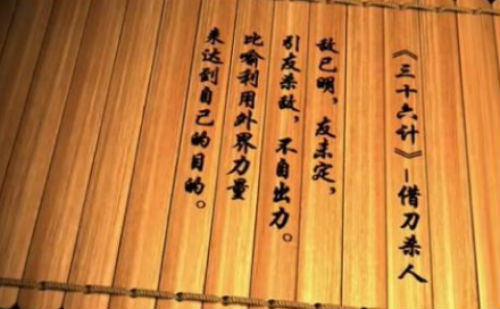 《三十六计》-借刀杀人
敌已明，友未定，
引友杀敌，不自出力。
比喻利用外界力量
来达到自己的目的。